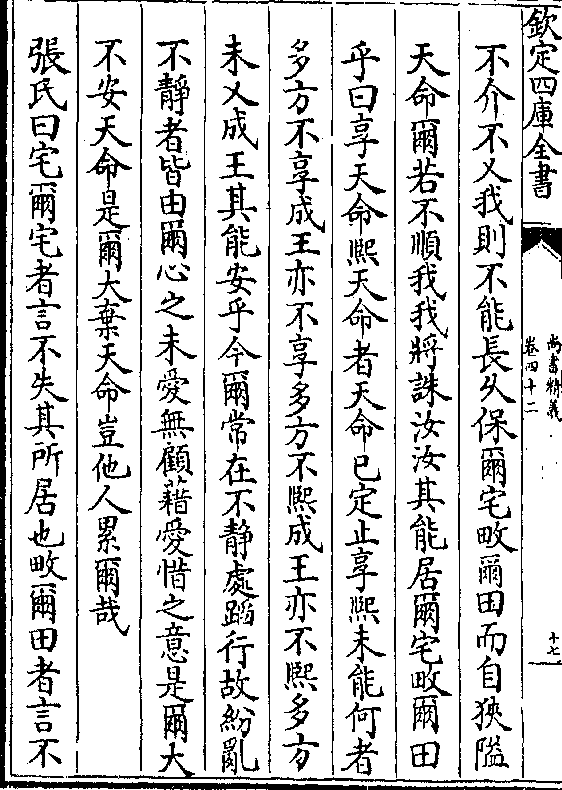 欽定四庫全書
尚書精義
卷四十二
十七
不介不乂我則不能長久保爾宅畋爾田而自狹隘
天命爾若不順我我將誅汝汝其能居爾宅畋爾田
乎曰享天命熙天命者天命已定止享熙未能何者
多方不享成王亦不享多方不熙成王亦不熙多方
未乂成王其能安乎今爾常在不靜處蹈行故紛亂
不靜者皆由爾心之未愛無顧藉愛惜之意是爾大
不安天命是爾大棄天命豈他人累爾哉
張氏曰宅爾宅者言不失其所居也畋爾田者言不